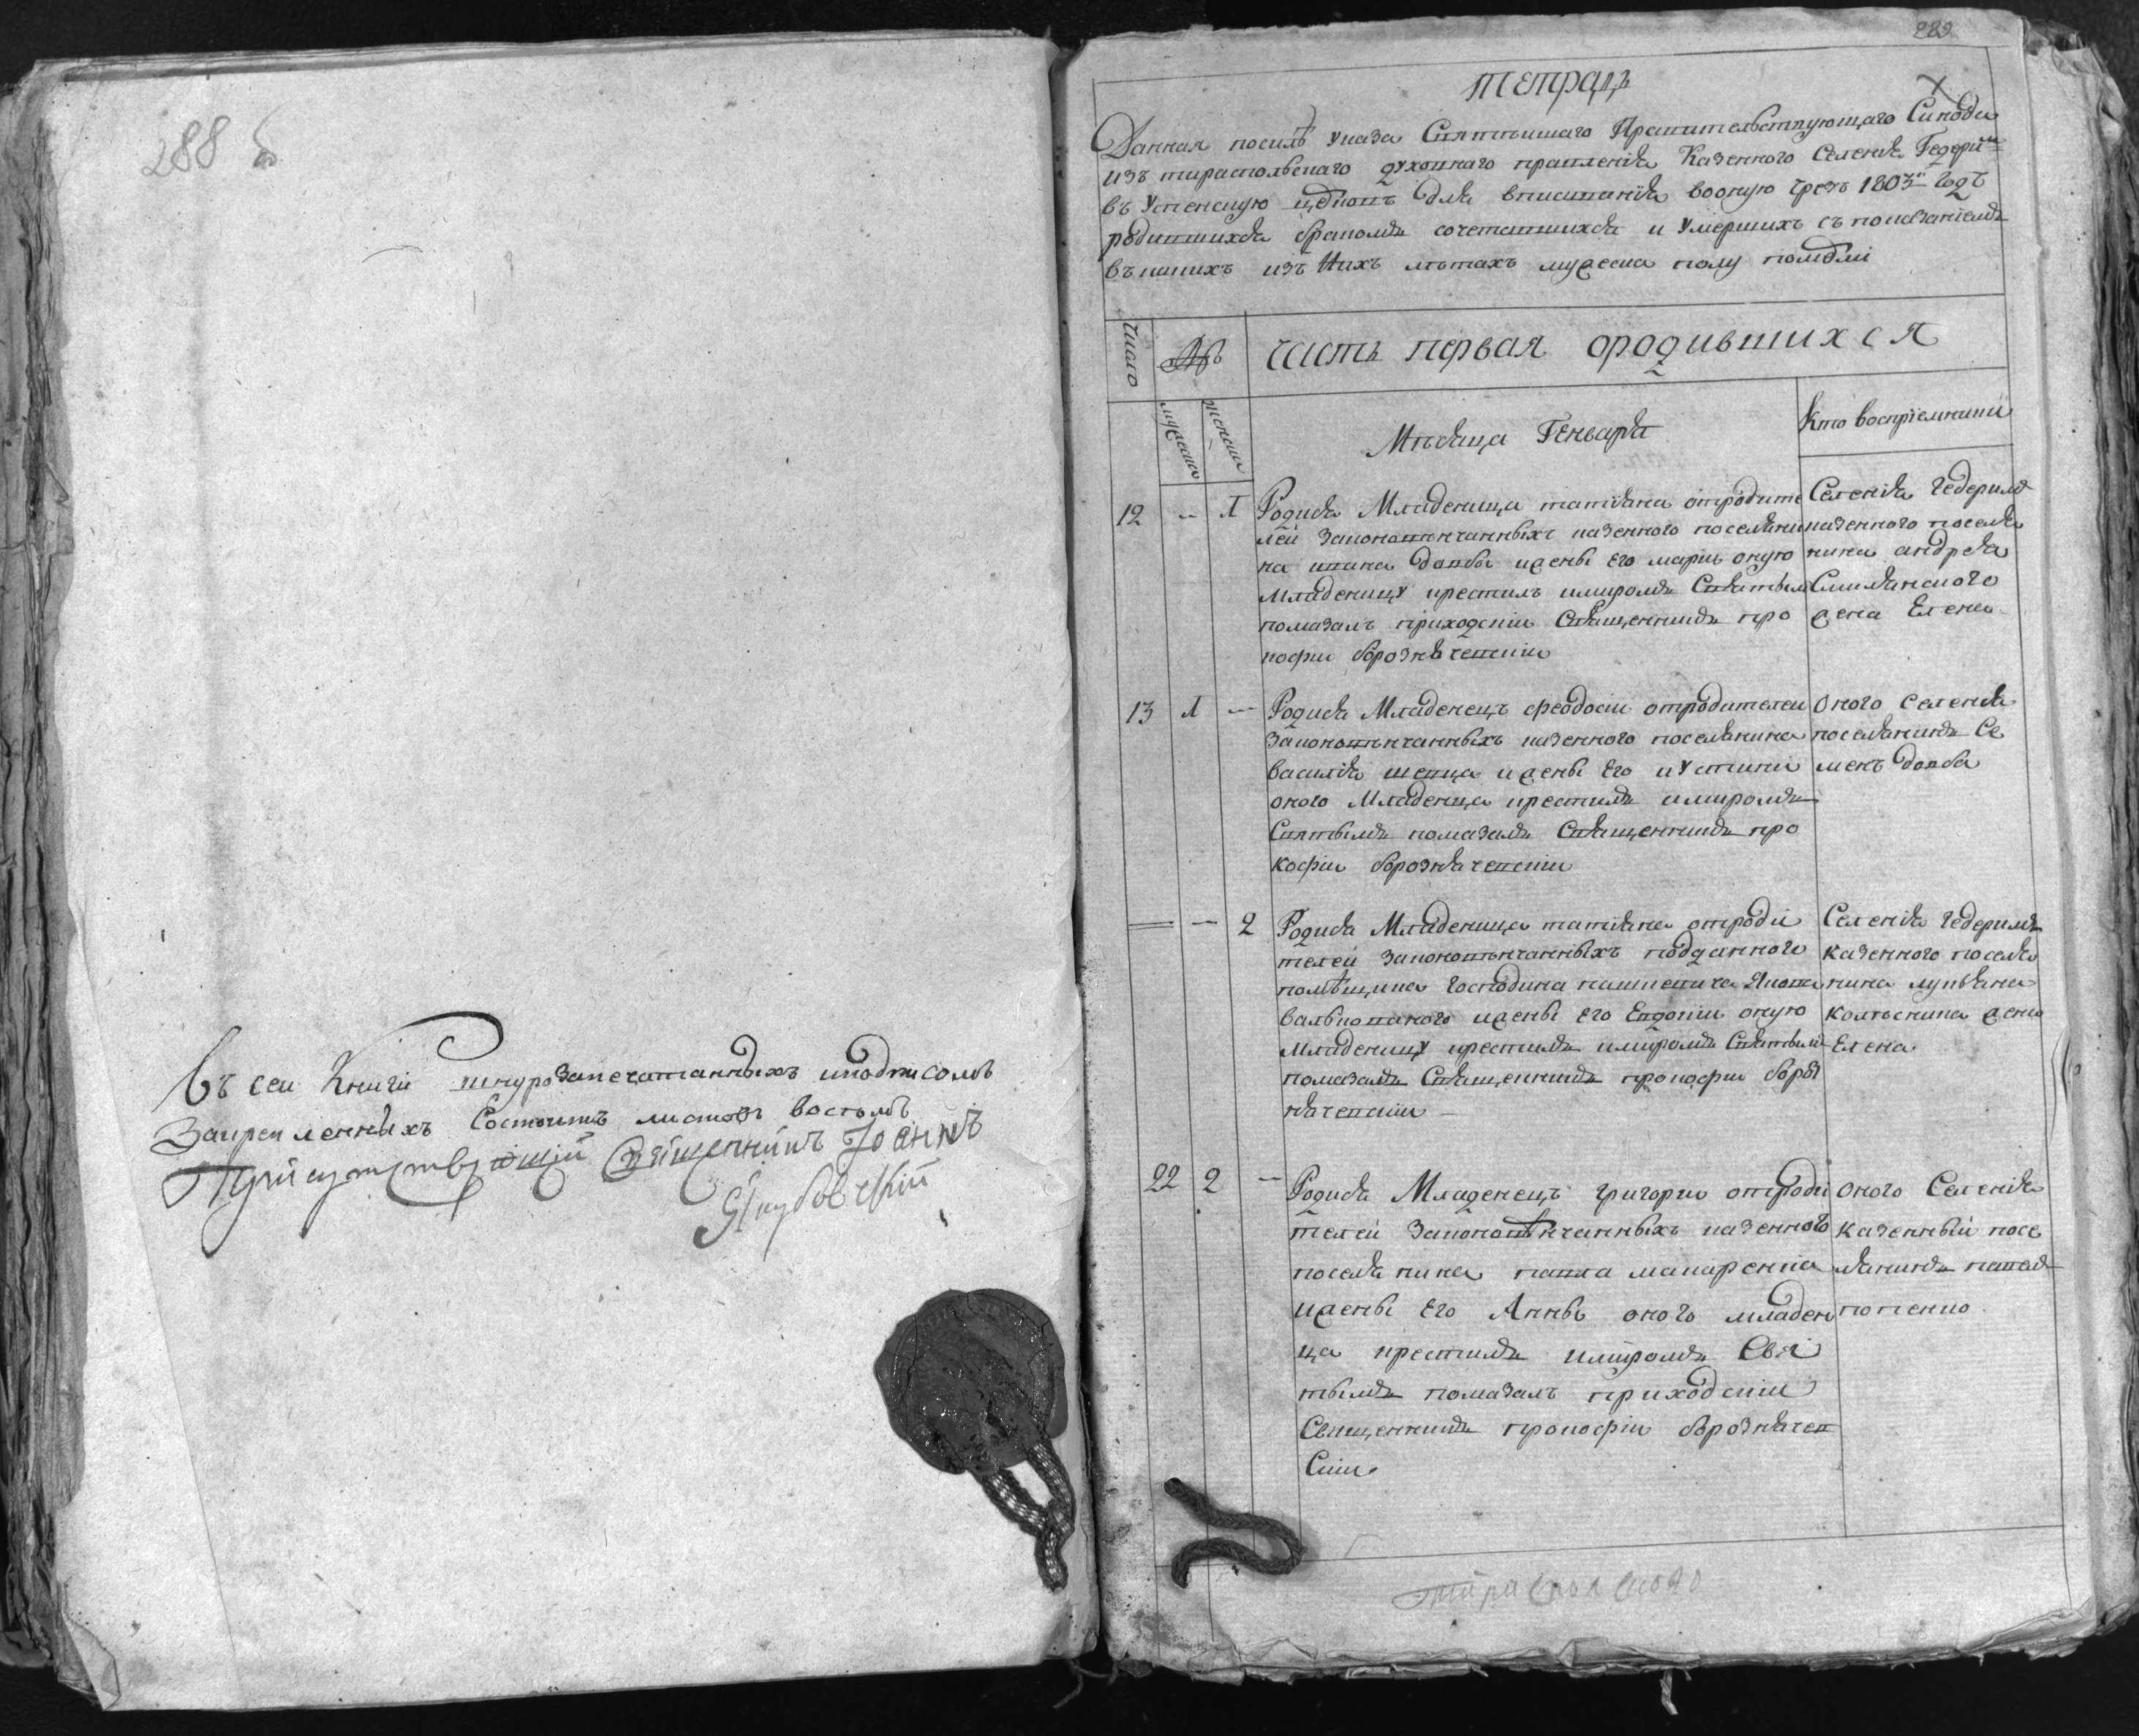 288 б
Въ сеи книги шнурозапечатанныхъ иподписомъ
Закрепленныхъ Состоитъ листовъ восѣмъ
Присутствующій Священникъ Іоаннъ
Якубовскій
289
тетрадь
Данная посилѣ указа Святѣишаго Правителствующаго Синода
изъ тираспольскаго духовнаго правленія Казенного Селенія Гедерим
въ Успенскую церковъ для вписиванія вооную чрезъ 1803й Годъ
родившихся бракомъ сочетавшихся и умершихъ съ показаніемъ
въкоихъ изъ Нихъ лѣтахъ мужеска полу
Число
№
часть первая ородившихся
мужеска
женска
Мѣсяца Генваря
Кто восприемники
12 - 1 Родися Младеница татіяна отродите
лей законовѣнчанныхъ казенного поселяни
на ивана довбы ижены его маріи оную
Младеницу крестилъ имиромъ Святымъ
помазалъ приходскіи Священникъ про
кофіи борознячевскіи
Селенія Гедеримъ
казенного поселя
нина андрея
Смилянского
жена Елена
13 1 - Родися Младенецъ феодосіи отродителеи
законовѣнчанныхъ казенного поселянина
василія шевца ижены Его иустини
оного Младенца крестилъ имиромъ
Святымъ помазалъ Священникъ про
кофіи борознячевскіи
Оного Селенія
поселянинъ Се
менъ довба
= - 2 Родися Младеница татіяна отроди
телей законовѣнчанныхъ подданного
помѣщика господина пашкевича Якова
валковского ижены его Евдокіи оную
Младеницу крестилъ имиромъ Святымъ
помазалъ Священникъ прокофіи бороз
нячевскіи
Селенія Гедеримъ
казенного поселя
нина лукяна
колѣсника жена
Елена
22 2 - Родися Младенецъ григории отроди
телей законовѣнчанныхъ казенного
поселянина павла макаренка
ижены его Анны оного младен
ца крестилъ имиромъ Свя
тымъ помазалъ приходскіи
Свещенникъ прокофіи борознячев
скіи.
Оного Селенія
казенный посе
лянинъ павелъ
попенко
тираспольского